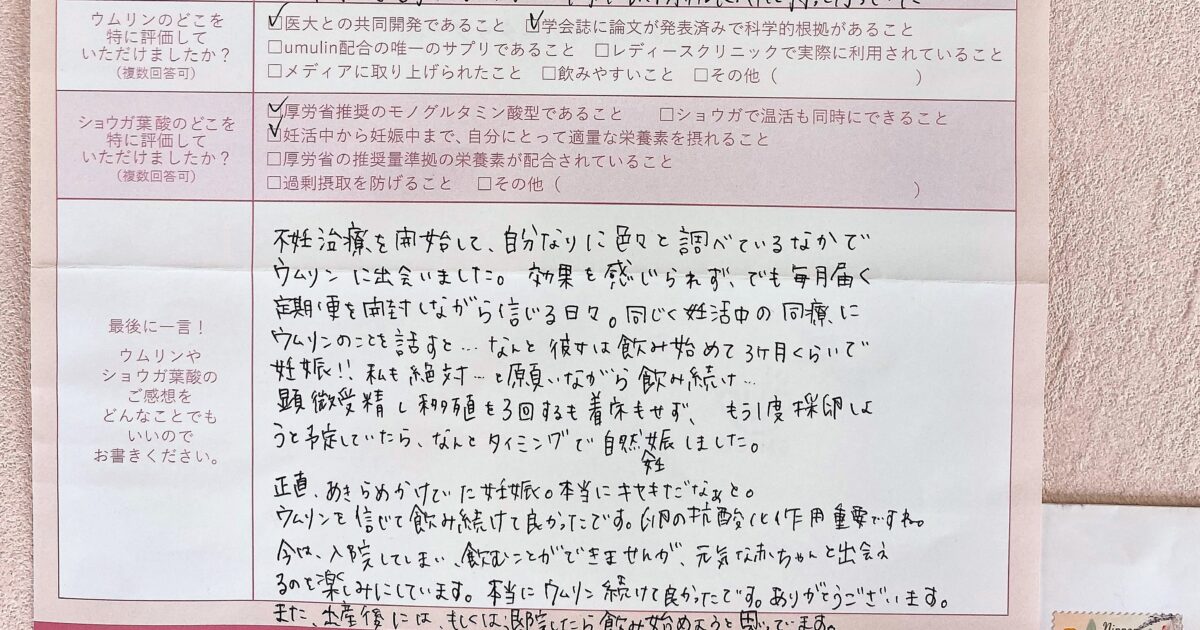 ウムリンのどこを
特に評価して
いただけましたか？
（複数回答可）
☑医大との共同開発であること ☑学会誌に論文が発表済みで科学的根拠があること
□umulin配合の唯一のサプリであること □レディースクリニックで実際に利用されていること
□メディアに取り上げられたこと □飲みやすいこと □その他（ ）
ショウガ葉酸のどこを
特に評価して
いただけましたか？
（複数回答可）
☑厚労省推奨のモノグルタミン酸型であること □ショウガで温活も同時にできること
☑妊活中から妊娠中まで、自分にとって適量な栄養素を摂れること
□厚労省の推奨量準拠の栄養素が配合されていること
□過剰摂取を防げること □その他（ ）
最後に一言！
ウムリンや
ショウガ葉酸の
ご感想を
どんなことでも
いいので
お書きください。
不妊治療を開始して、自分なりに色々と調べているなかで
ウムリンに出会いました。効果を感じられず、でも毎月届く
定期便を開封しながら信じる日々。同じく妊活中の同療に
ウムリンのことを話すと…なんと彼女は飲み始めて3ヶ月くらいで
妊娠!! 私も絶対…と願いながら飲み続け…
顕微受精し移植を3回するも着床もせず、もう1度採卵しよ
うと予定していたら、なんとタイミングで自然妊娠しました。
正直、あきらめかけていた妊娠。本当にキセキだなぁと。
ウムリンを信じて飲み続けて良かったです。卵の抗酸化作用重要ですね。
今は、入院してしまい、飲むことができませんが、元気な赤ちゃんと出会え
るのを楽しみにしています。本当にウムリン続けて良かったです。ありがとうございます。
また、出産後には、もしくは、退院したら飲み始めようと思っています。
Nippon